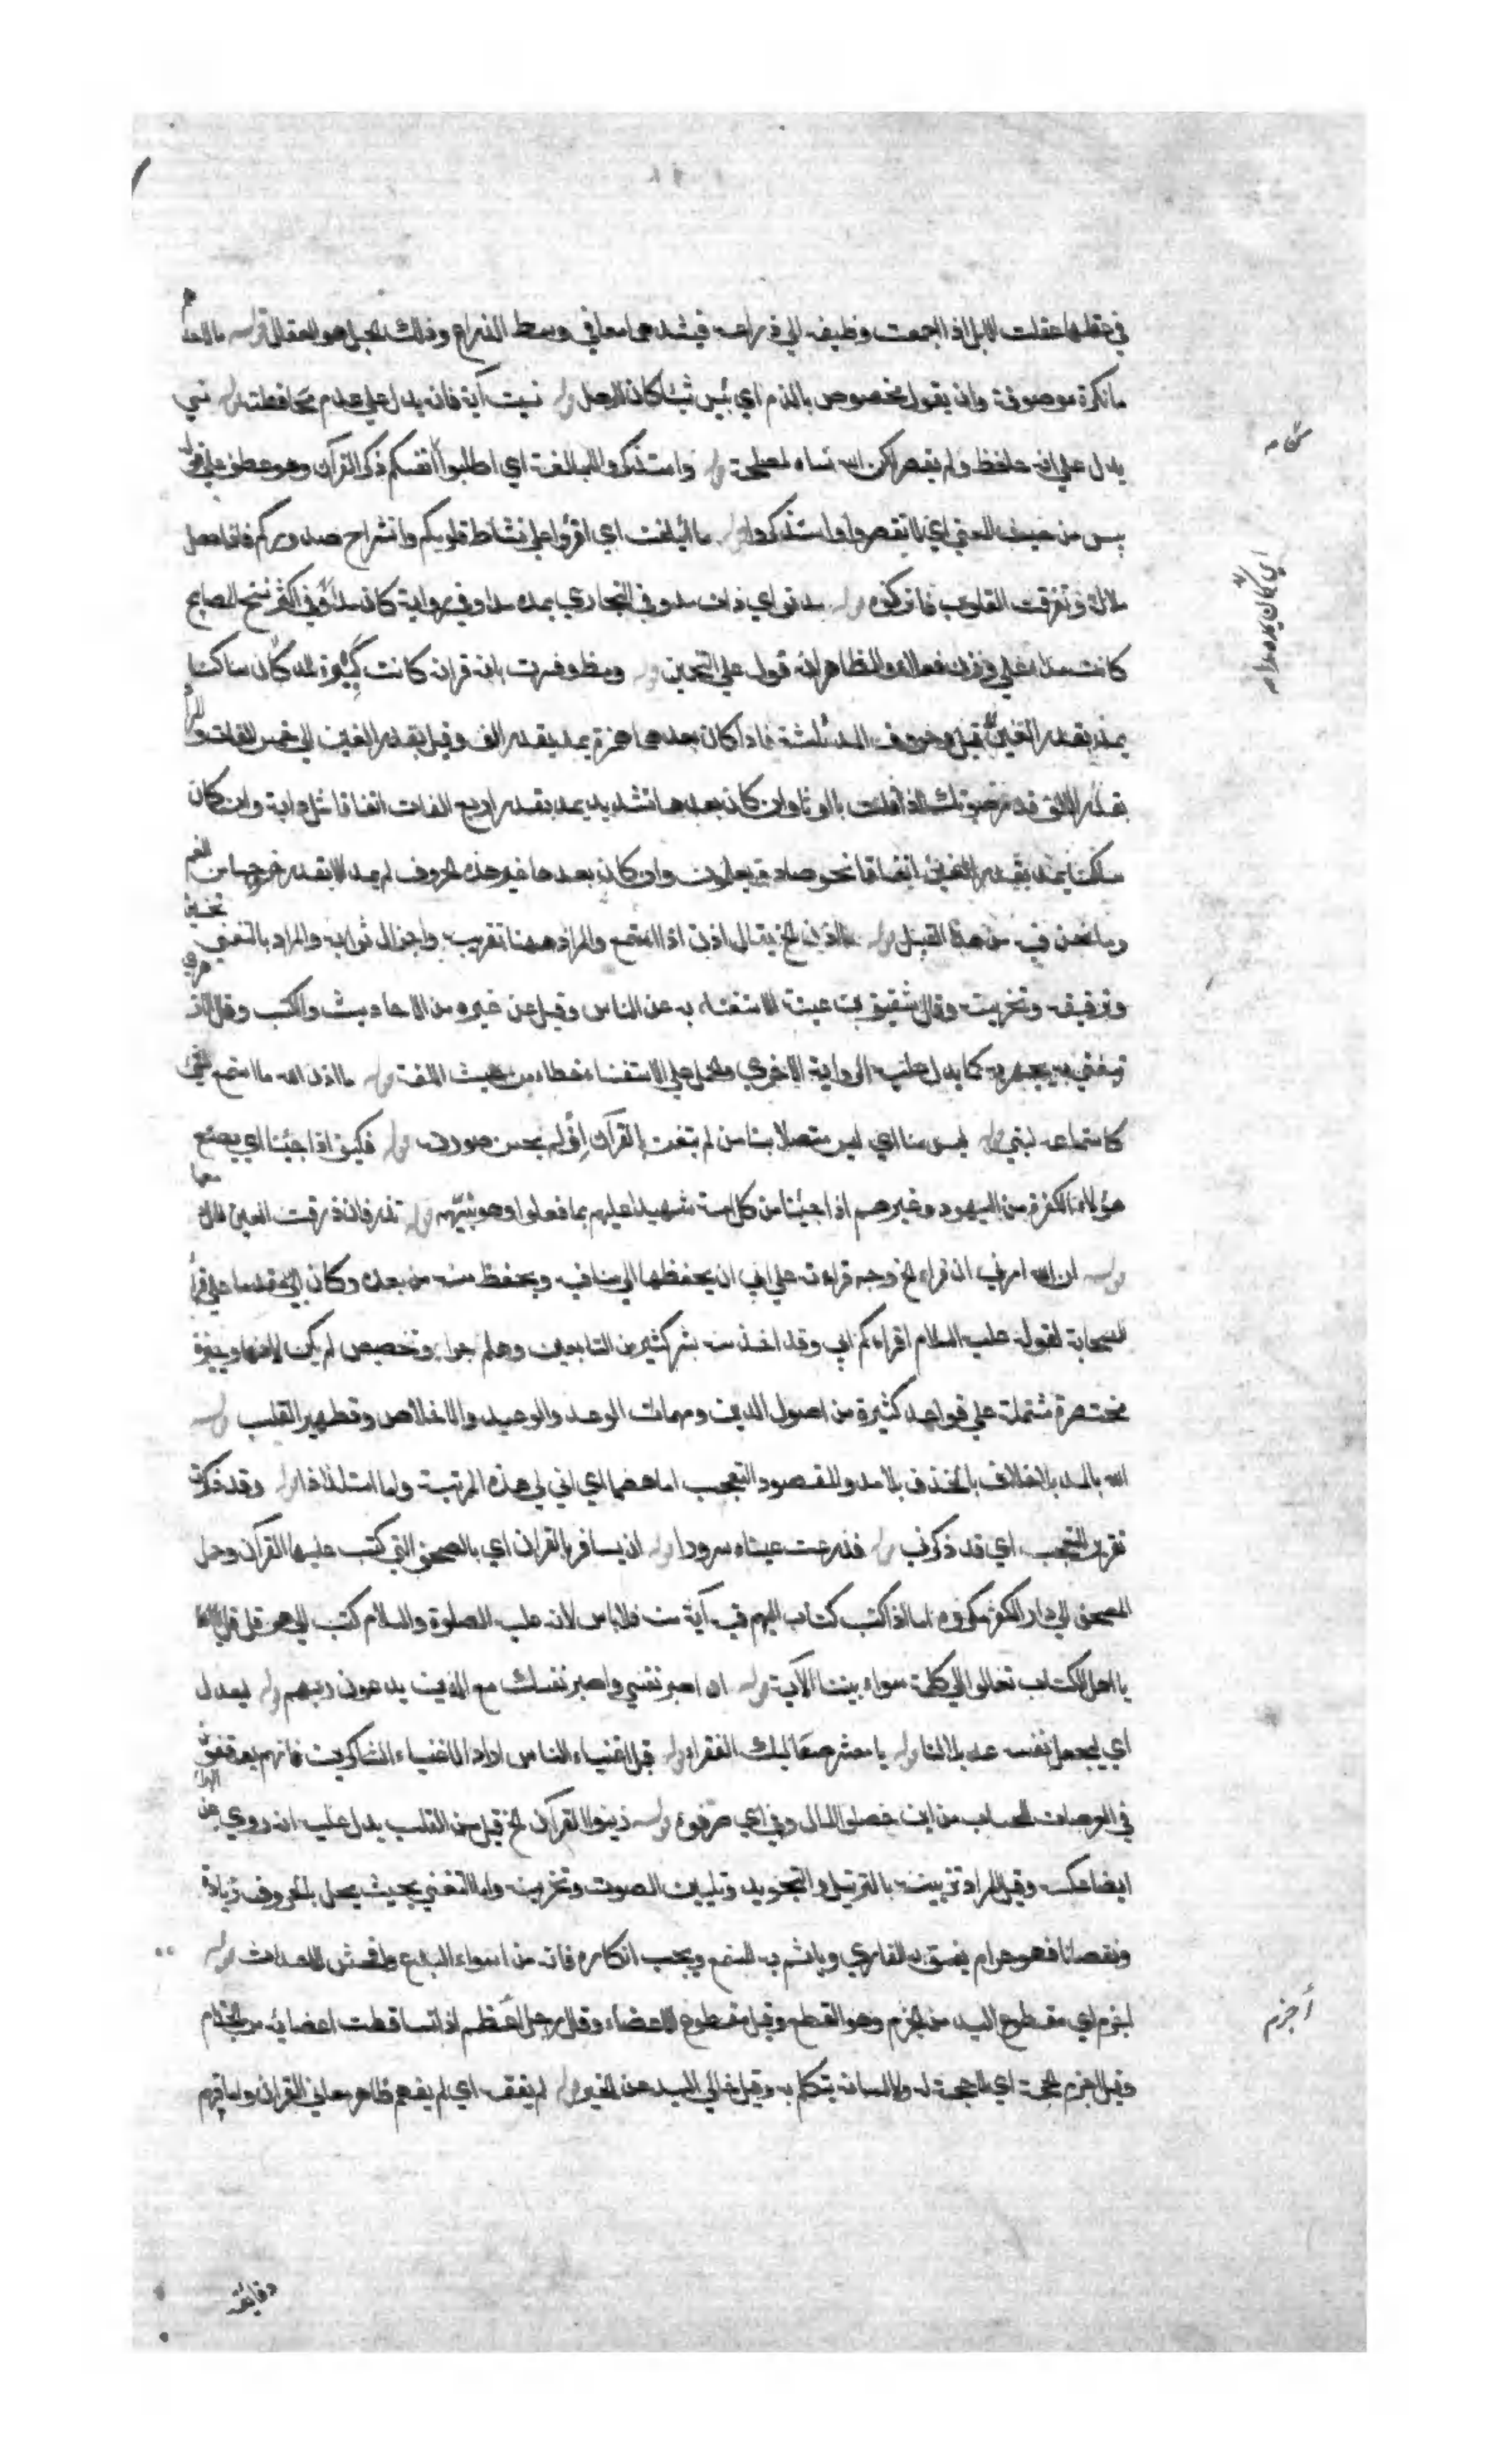 في عقلها عقلت الابل اذا جمعت وظيفه الي ذراعه فيشدهما معا في وسط الذراع وذلك الحبل هو العقال قوله ما لاحد
ما نكرة موصوفة وان يقول مخصوص بالذم اي بئس شيئا كان للرجل قوله نسيت آية فانه يدل علي عدم محافظته قوله نسي
يدل علي انه حافظ ولم يقصر لكن الله نساه لمصلحة قوله واستذكروا للمبالغة اي اطلبوا انفسكم ذكر القرآن وهو عطف علي قوله
بئس من حيث المعني اي لا تقصروا واستذكروا قوله ما ائتلفت اي اقرؤا علي نشاط قلوبكم وانشراح صدوركم فاذا حصل
ملالة وتفرقت القلوب فاتركوه قوله مدا اي ذات مد وفي البخاري يمد مدا وفي رواية كان مدا وفي اكثر نسخ المصابيح
كانت مداء علي وزن فعلاء والظاهر انه قول علي التخمين قوله
يمد بقدر الف قيل حروف المد ثلثة فاذا كان بعدها همزة يمد بقدر الف وقيل بقدر الفين الي خمس الفات
بقدر الالف قدر صوتك اذا قلت با او تا وان كان بعدها تشديد يمد بقدر اربع الفات اتفاقا مثل دابة وان كان
ساكنا يمد بقدر الفين اتفاقا نحو صاد ويعلمون وان كان بعدها غير هذه الحروف لم يمد الا بقدر خروجها من الفم
وما نحن فيه من هذا القبيل قوله ما اذن الخ يقال اذن اذا استمع والمراد ههنا تقريبه واجزال ثوابه والمراد بالتغني تحسين
وترقيقه وتحزينه وقال سفيان بن عيينة الاستغناء به عن الناس وقيل عن غيره من الاحاديث والكتب وقال
يتغني به يجهر به كما يدل عليه الرواية الاخري والحمل علي الاستغناء خطاء من حيث اللغة قوله ما اذن الله ما استمع لشي
كاستماعه لنبي قوله ليس منا اي ليس متصلا بنا من لم يتغن بالقرآن اي لم يحسن صوته قوله فكيف اذا جئنا اي يصنع
هؤلاء الكفرة من اليهود وغيرهم اذا جئنا من كل امة شهيدا عليهم بما فعلوا وهو نبيهم قوله تذرفان ذرفت العين سال دمعها
قوله ان الله امرني ان اقراء الخ وجه قراءته علي ابي ان يحفظها ابي من فيه ويحفظ منه من بعده وكان ابي مقدما علي قراء
الصحابة لقوله عليه السلام اقراءكم ابي وقد اخذ منه بشر كثير من التابعين وهلم جرا وتخصيص لم يكن لانها وجيزة
مختصرة مشتملة علي قواعد كثيرة من اصول الدين ومهمات الوعد والوعيد والاخلاص وتطهير القلب قوله
الله بالمد بلا خلاف بالحذف بلا مد والمقصود التعجب اما هضما اي اني لي هذه المرتبة واما استلذاذا قوله وقد ذكرت
تقرير التعجب اي قد ذكرني قوله فذرفت عيناه سرورا قوله ان يسافر بالقران اي بالمصحف التي كتب عليها القرآن وحمل
المصحف الي دار الكفر مكروه اما اذا كتب كتاب اليهم فيه آية منه فلا باس لانه عليه الصلوة والسلام كتب الي هرقل
يا اهل الكتاب تعالوا الي كلمة سواء بيننا الآية قوله ان اصبر نفسي واصبر نفسك مع الذين يدعون ربهم قوله ليعدل
اي ليجعل نفسه عديلا لنا قوله يا معشر صعاليك الفقراء قوله قبل اغنياء الناس اراد الاغنياء الشاكرين فانهم يوقفون
في العرصات للحساب من اين حصلوا المال وفي اي صرفوه قوله زينوا القرآن الخ قيل من القلب يدل عليه انه روي عن البراء
ايضا عكسه وقيل المراد تزيينه بالترتيل والتجويد وتليين الصوت وتحزينه واما التغني بحيث يخل بالحروف زيادة
ونقصانا فهو حرام يفسق به القاري وياثم به المستمع ويجب انكاره فانه من اسواء البدع وافحش الاحداث قوله
اجزم اي مقطوع اليد من الجزم وهو القطع وقيل مقطوع الاعضاء وقال رجل اجذم اذا تساقطت اعضائه من الجذام
وقيل اجزم الحجة اي لا حجة له ولا لسان يتكلم به وقيل خالي اليد عن الخير قوله لم يفقه اي لم يفهم ظاهر معاني القران واما فهم
أجزم
دقايقه